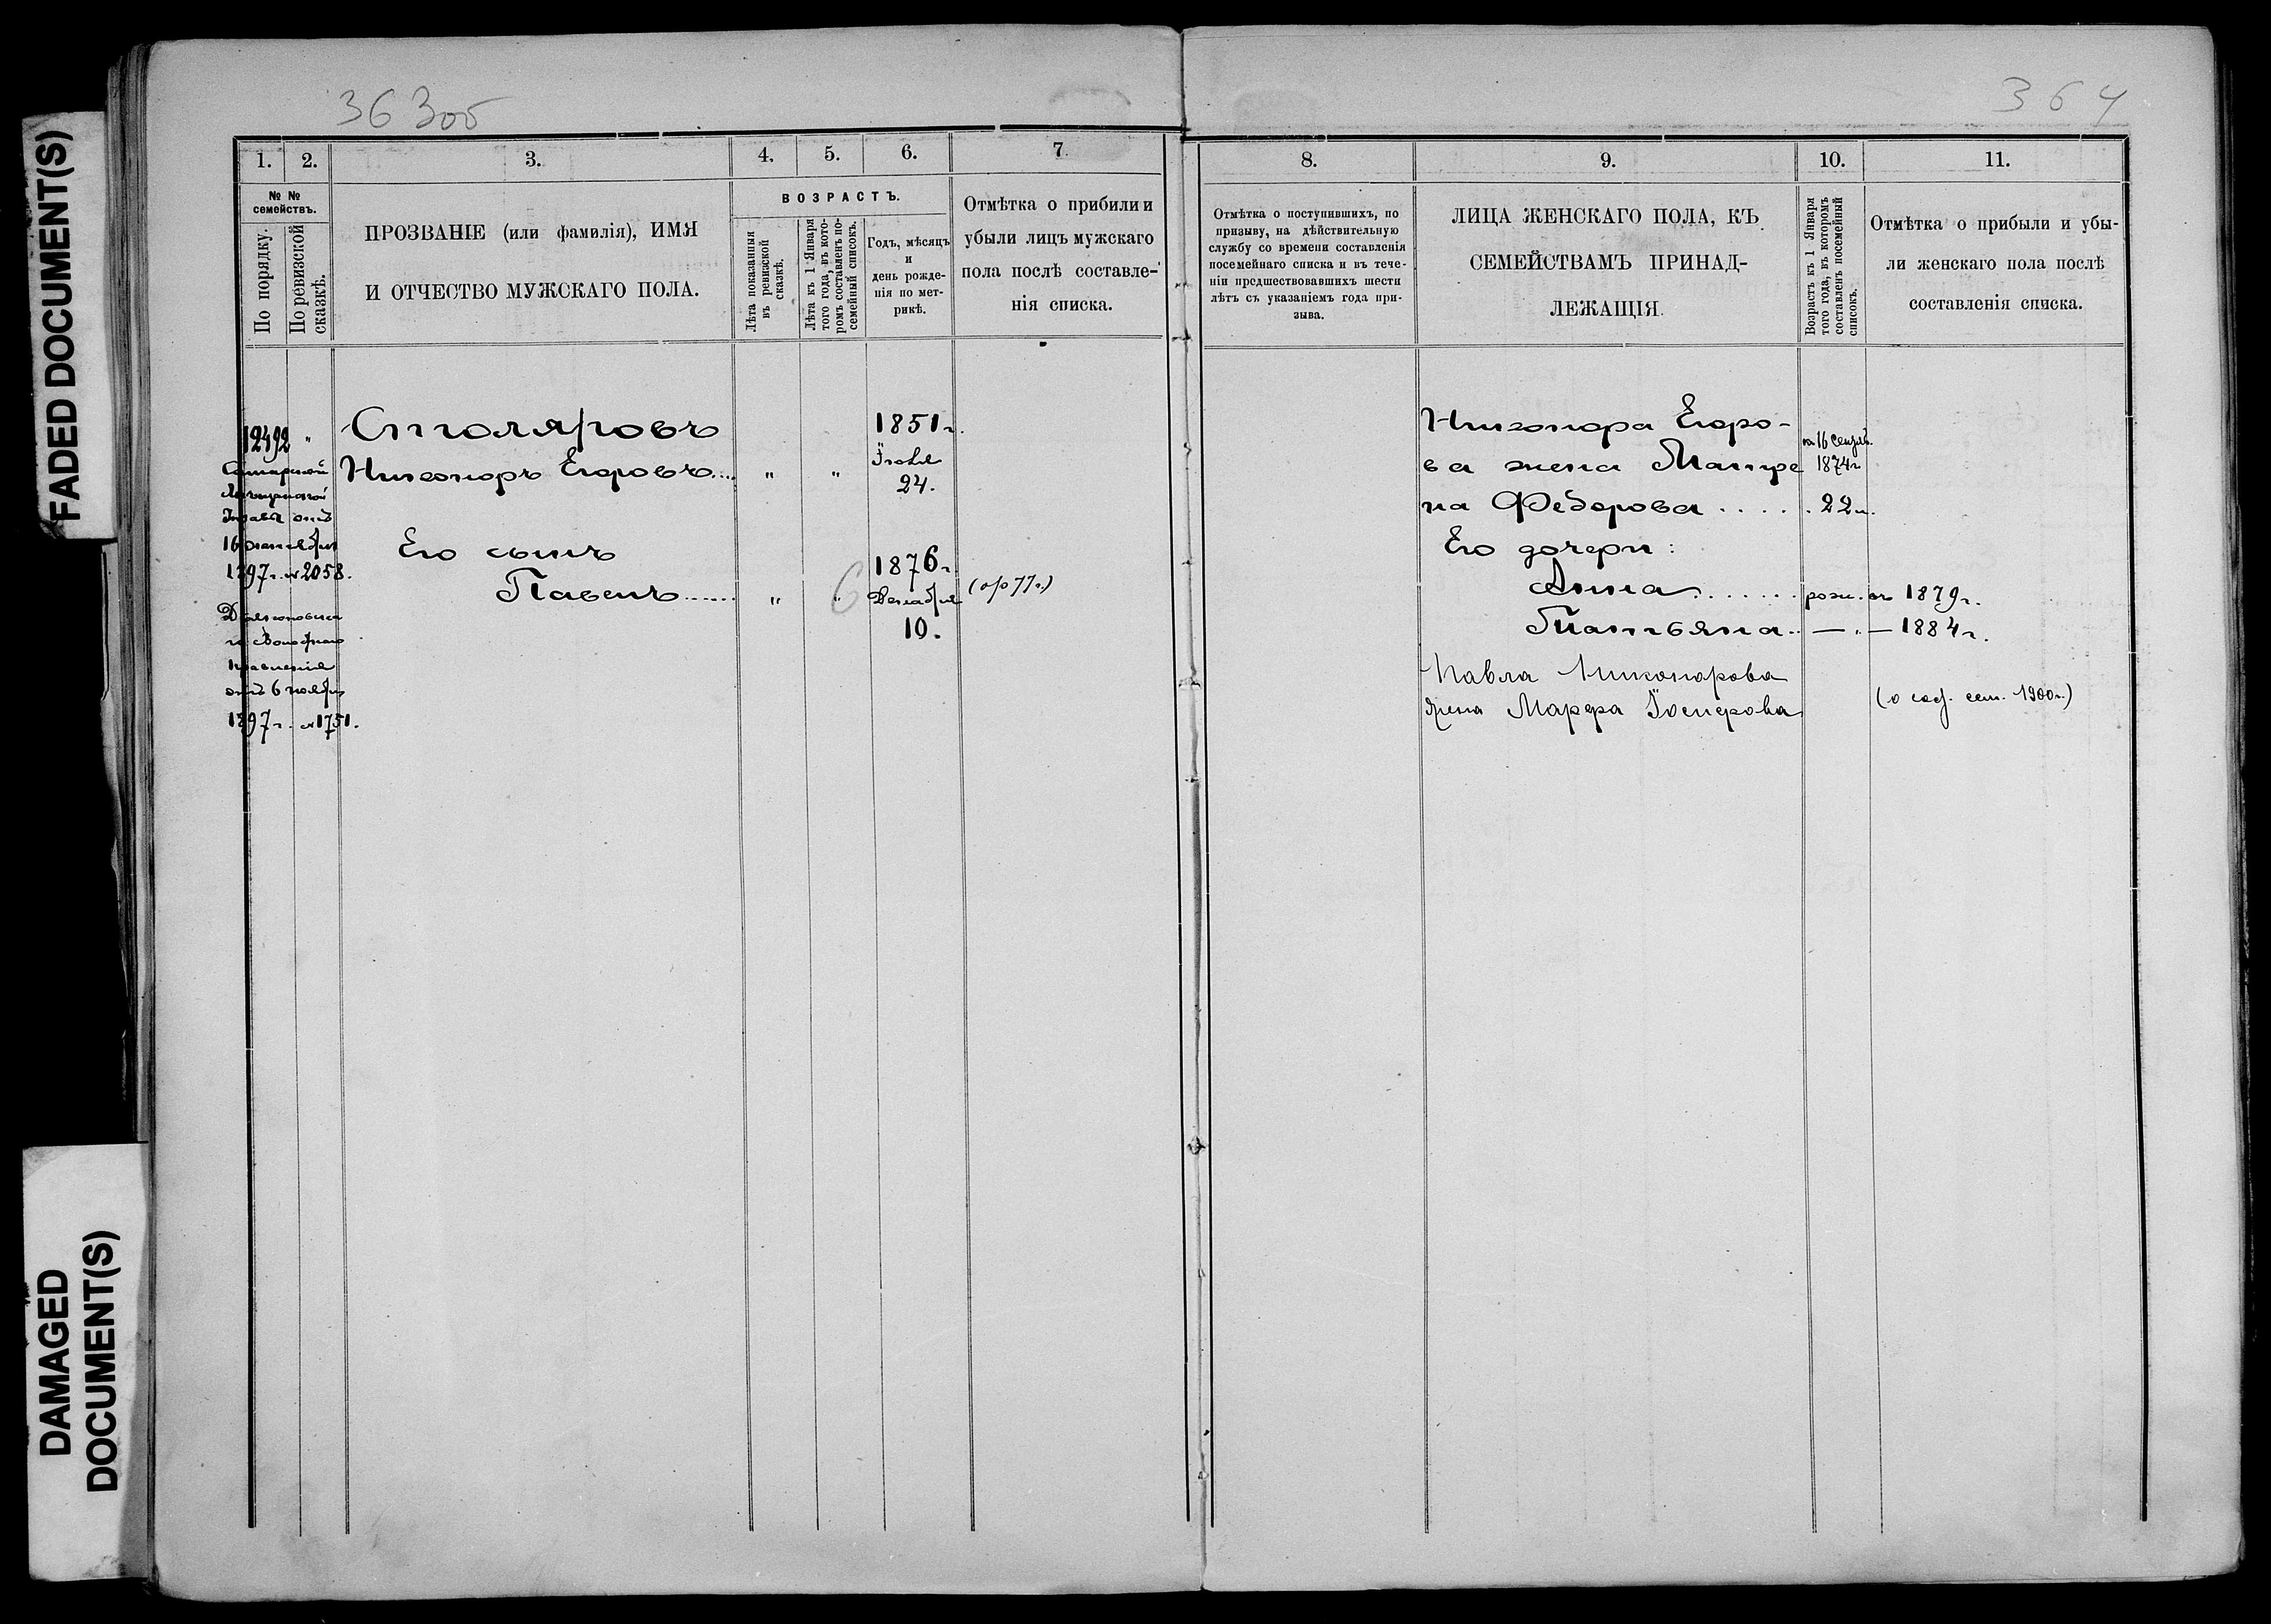 FADED DOCUMENT(S)
DAMAGED
DOCUMENT(S)
363об
364
1.
2.
3.
4.
5.
6.
7.
№ №
семействъ.
По порядку.
По ревизской
сказкѣ.
ПРОЗВАНІЕ (или фамилія), ИМЯ
И ОТЧЕСТВО МУЖСКАГО ПОЛА.
ВОЗРАСТЪ.
Лѣта показанныя
въ ревизской
сказкѣ.
Лѣта къ 1 Января
того года, въ кото-
ромъ составленъ по-
семейный списокъ.
Годъ, мѣсяцъ
и
день рожде-
нія по мет-
рикѣ.
Отмѣтка о прибыли и
убыли лицъ мужскаго
пола послѣ составле-
нія списка.
12492 "
Самарской
Мѣщанской
Управы отъ
16 октября
1897 г. № 2058.
го Волостного
правленія
отъ 6 ноября
1897 г. № 1751.
Столяровъ
Никоноръ Егоровъ.... " "
1851 г.
Іюля
24.
Его сынъ
Павелъ...... " " 6
1876 г.
Декабря
10.
(пр 77 г.)
8.
9.
10.
11.
Отмѣтка о поступившихъ, по
призыву, на дѣйствительную
службу со времени составленія
посемейнаго списка и въ тече-
ніи предшествовавшихъ шести
лѣтъ съ указаніемъ года при-
зыва.
ЛИЦА ЖЕНСКАГО ПОЛА, КЪ
СЕМЕЙСТВАМЪ ПРИНАД-
ЛЕЖАЩІЯ.
Возрастъ къ 1 Января
того года, въ которомъ
составленъ посемейный
списокъ.
Отмѣтка о прибыли и убы-
ли женскаго пола послѣ
составленія списка.
Никонора Егоро-
ва жена Матре
на Федорова . . . .
на 16 Сентяб.
1874 г.
22 л.
Его дочери:
Анна . . . . . . рожд. въ 1879 г.
Татьяна.. — " — 1884 г.
Павла Никонорова
жена Марфа
1900 г.)